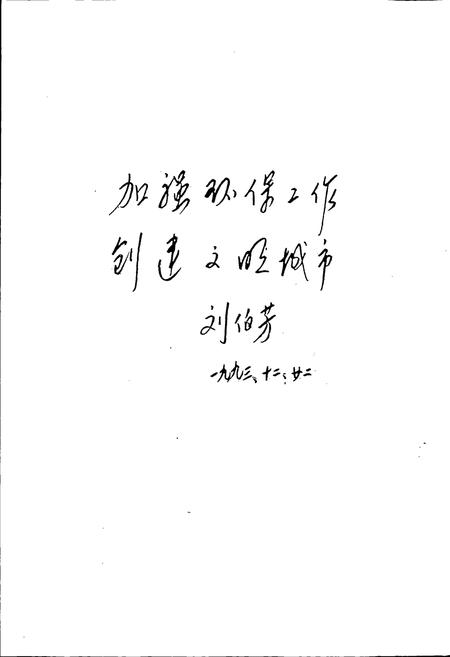 加强环保工作
创建文明城市
刘伯芳
一九九三、十二、廿二